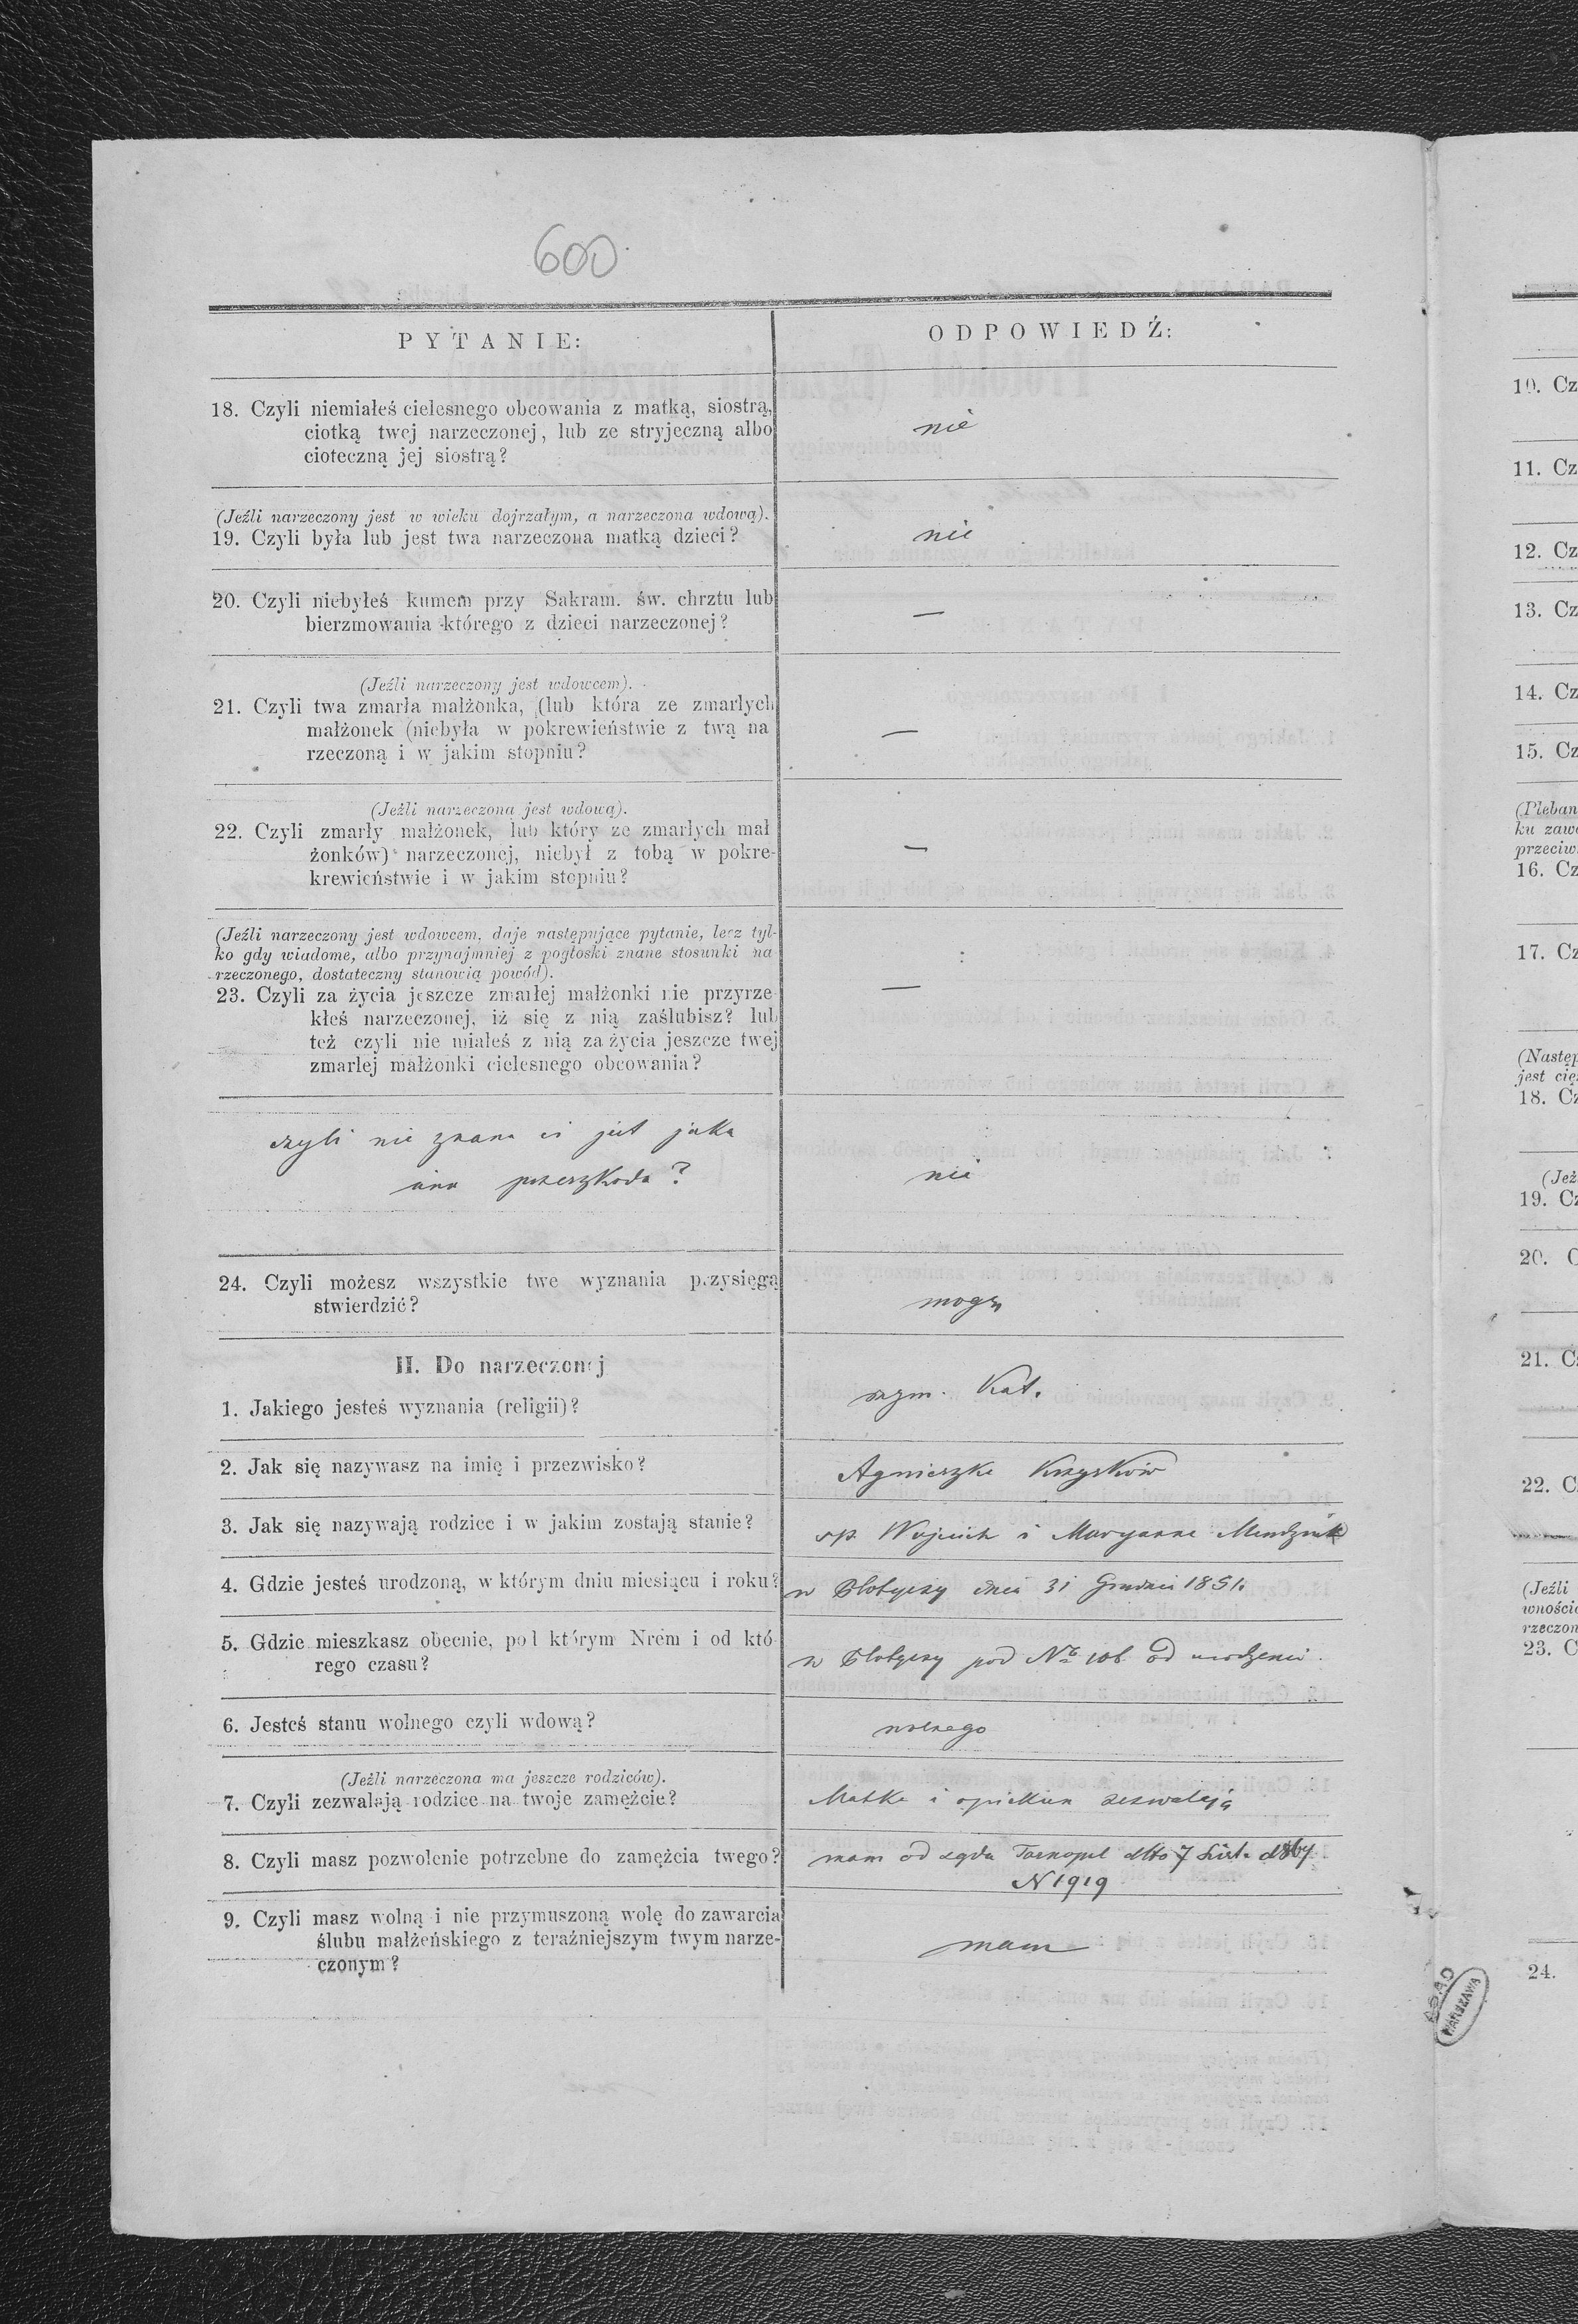 600
PYTANIE:
ODPOWIEDŹ:
18. Czyli niemiałeś cielesnego obcowania z matką, siostrą,
ciotką twej narzeczonej, lub ze stryjeczną albo
cioteczną jej siostrą?
nie
(Jeźli narzeczony jest w wieku dojrzałym, a narzeczona wdową).
19. Czyli była lub jest twa narzeczona matką dzieci?
nie
20. Czyli niebyłeś kumem przy Sakram. św. chrztu lub
bierzmowania którego z dzieci narzeczonej?
—
(Jeźli narzeczony jest wdowcem).
21. Czyli twa zmarła małżonka, (lub która ze zmarłych
małżonek (niebyła w pokrewieństwie z twą na
rzeczoną i w jakim stopniu?
—
(Jeźli narzeczona jest wdową).
22. Czyli zmarły małżonek, lub który ze zmarłych mał
żonków) narzeczonej, niebył z tobą w pokre-
krewieństwie i w jakim stopniu?
—
(Jeźli narzeczony jest wdowcem, daje następujące pytanie, lecz tyl-
ko gdy wiadome, albo przynajmniej z pogłoski znane stosunki na
rzeczonego, dostateczny stanowią powód).
23. Czyli za życia jeszcze zmarłej małżonki nie przyrze
kłeś narzeczonej, iż się z nią zaślubisz? lub
też czyli nie miałeś z nią za życia jeszcze twej
zmarłej małżonki cielesnego obcowania?
—
czyli nie znana ci jest jaka
inna przeszkoda?
nie
24. Czyli możesz wszystkie twe wyznania przysięgą
stwierdzić?
mogę
II. Do narzeczonej
1. Jakiego jesteś wyznania (religii)?
rzym. Kat.
2. Jak się nazywasz na imię i przezwisko?
Agnieszka
3. Jak się nazywają rodzice i w jakim zostają stanie?
sp. Wojciech i Maryanna
4. Gdzie jesteś urodzoną, w którym dniu miesiącu i roku?
w Płotyczy dnia 31 Grudnia 1851.
5. Gdzie mieszkasz obecnie, pod którym Nrem i od któ
rego czasu?
w Płotyczy pod No 106 od urodzenia.
6. Jesteś stanu wolnego czyli wdową?
wolnego
(Jeźli narzeczona ma jeszcze rodziców).
7. Czyli zezwalają rodzice na twoje zamężcie?
Matka i opiekun zezwalają
8. Czyli masz pozwolenie potrzebne do zamężcia twego?
mam od sądu Tarnopol dtto 7 List.
N 1919
9. Czyli masz wolną i nie przymuszoną wolę do zawarcia
ślubu małżeńskiego z teraźniejszym twym narze-
czonym?
mam
10. Cz
11. Cz
12. Cz
13. Cz
14. Cz
15. Cz
(Pleban
ku zawo
przeciw
16. Cz
17. Cz
(Następ
jest cię
18. Cz
(Jeź
19. Cz
20. C
21. C
22. C
(Jeźli
wności
rzeczon
23. C
24.
AGAD
WARSZAWA